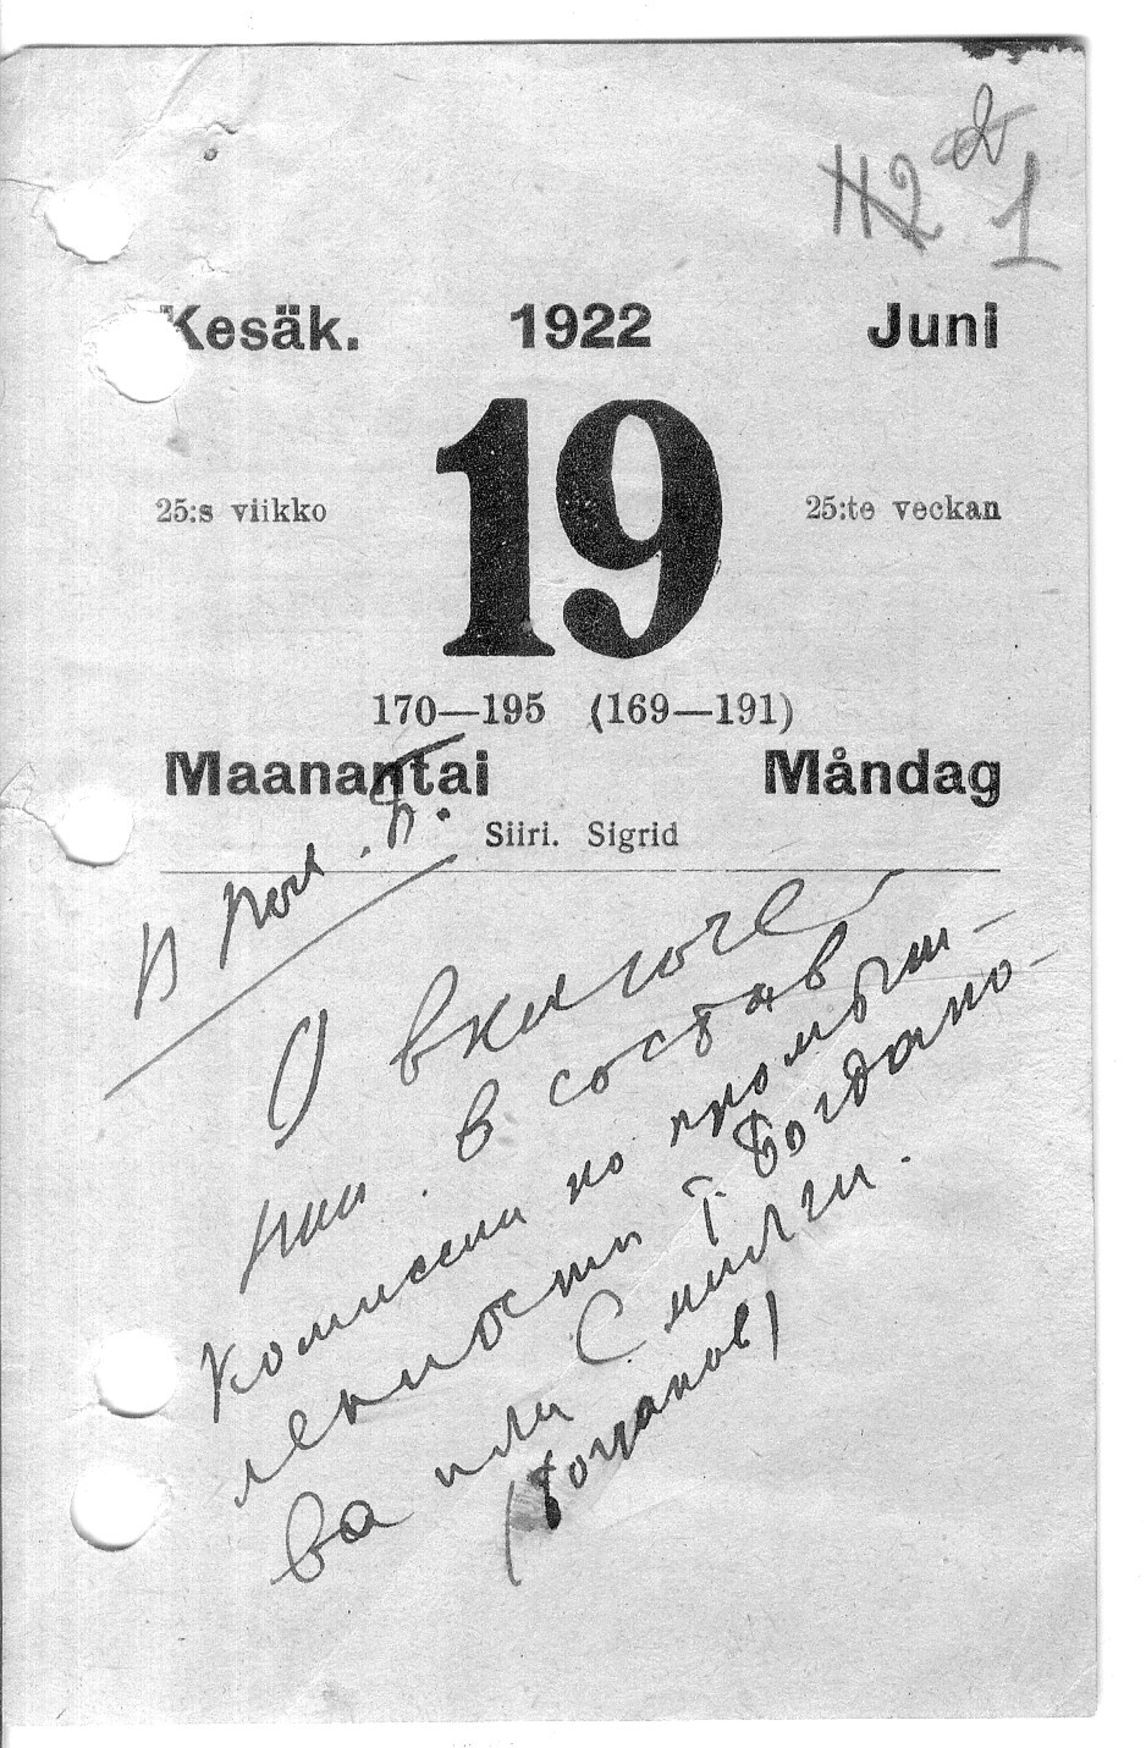 1
Kesäk. 1922 Juni
25:s viikko 19 25:te veckan
170—195 (169—191)
Maanantai Måndag
Siiri. Sigrid
О включе-
нии в состав
комиссии по промыш-
ленности т. Богдано-
ва или Смилги.
(Богданов)